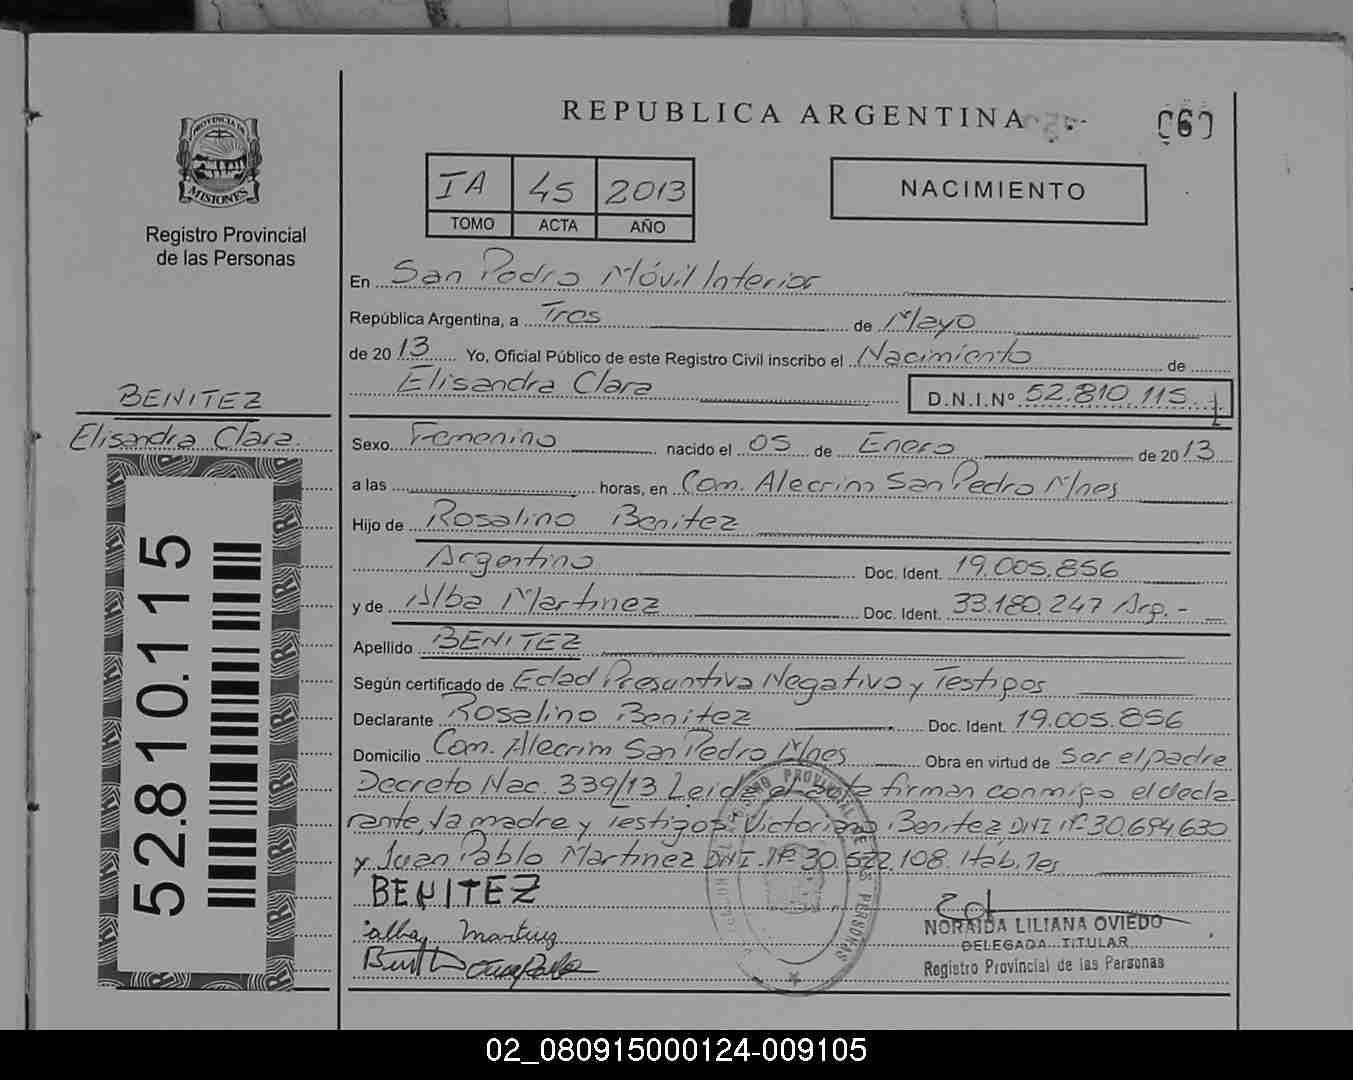 REPUBLICA ARGENTINA
060
PROVINCIA DE
MISIONES
Registro Provincial
de las Personas
IA 45 2013
TOMO ACTA AÑO
NACIMIENTO
En San Pedro Móvil Interior
República Argentina, a Tres de Mayo
de 2013 Yo, Oficial Público de este Registro Civil inscribo el Nacimiento de
Elisandra Clara D.N.I.Nº 52.810.115
BENITEZ
Elisandra Clara.
52.810.115
Sexo Femenino nacido el 05 de Enero de 2013
a las horas, en Com. Alecrim San Pedro Mnes
Hijo de Rosalino Benitez
Argentino Doc. Ident. 19.005.856
y de Alba Martinez Doc. Ident. 33.180.247 Arg.-
Apellido BENITEZ
Según certificado de Edad Presuntiva Negativo y Testigos
Declarante Rosalino Benitez Doc. Ident. 19.005.856
Domicilio Com. Alecrim San Pedro Mnes Obra en virtud de ser el padre
Decreto Nac. 339/13 Leida el acta firman conmigo el decla-
rante, la madre y Testigos Victoriano Benitez DNI Nº 30.694.630
y Juan Pablo Martinez DNI. Nº 30.522.108. Hab. Tes
BENITEZ
alba Martinez
NORAIDA LILIANA OVIEDO
DELEGADA TITULAR
Registro Provincial de las Personas
02_080915000124-009105